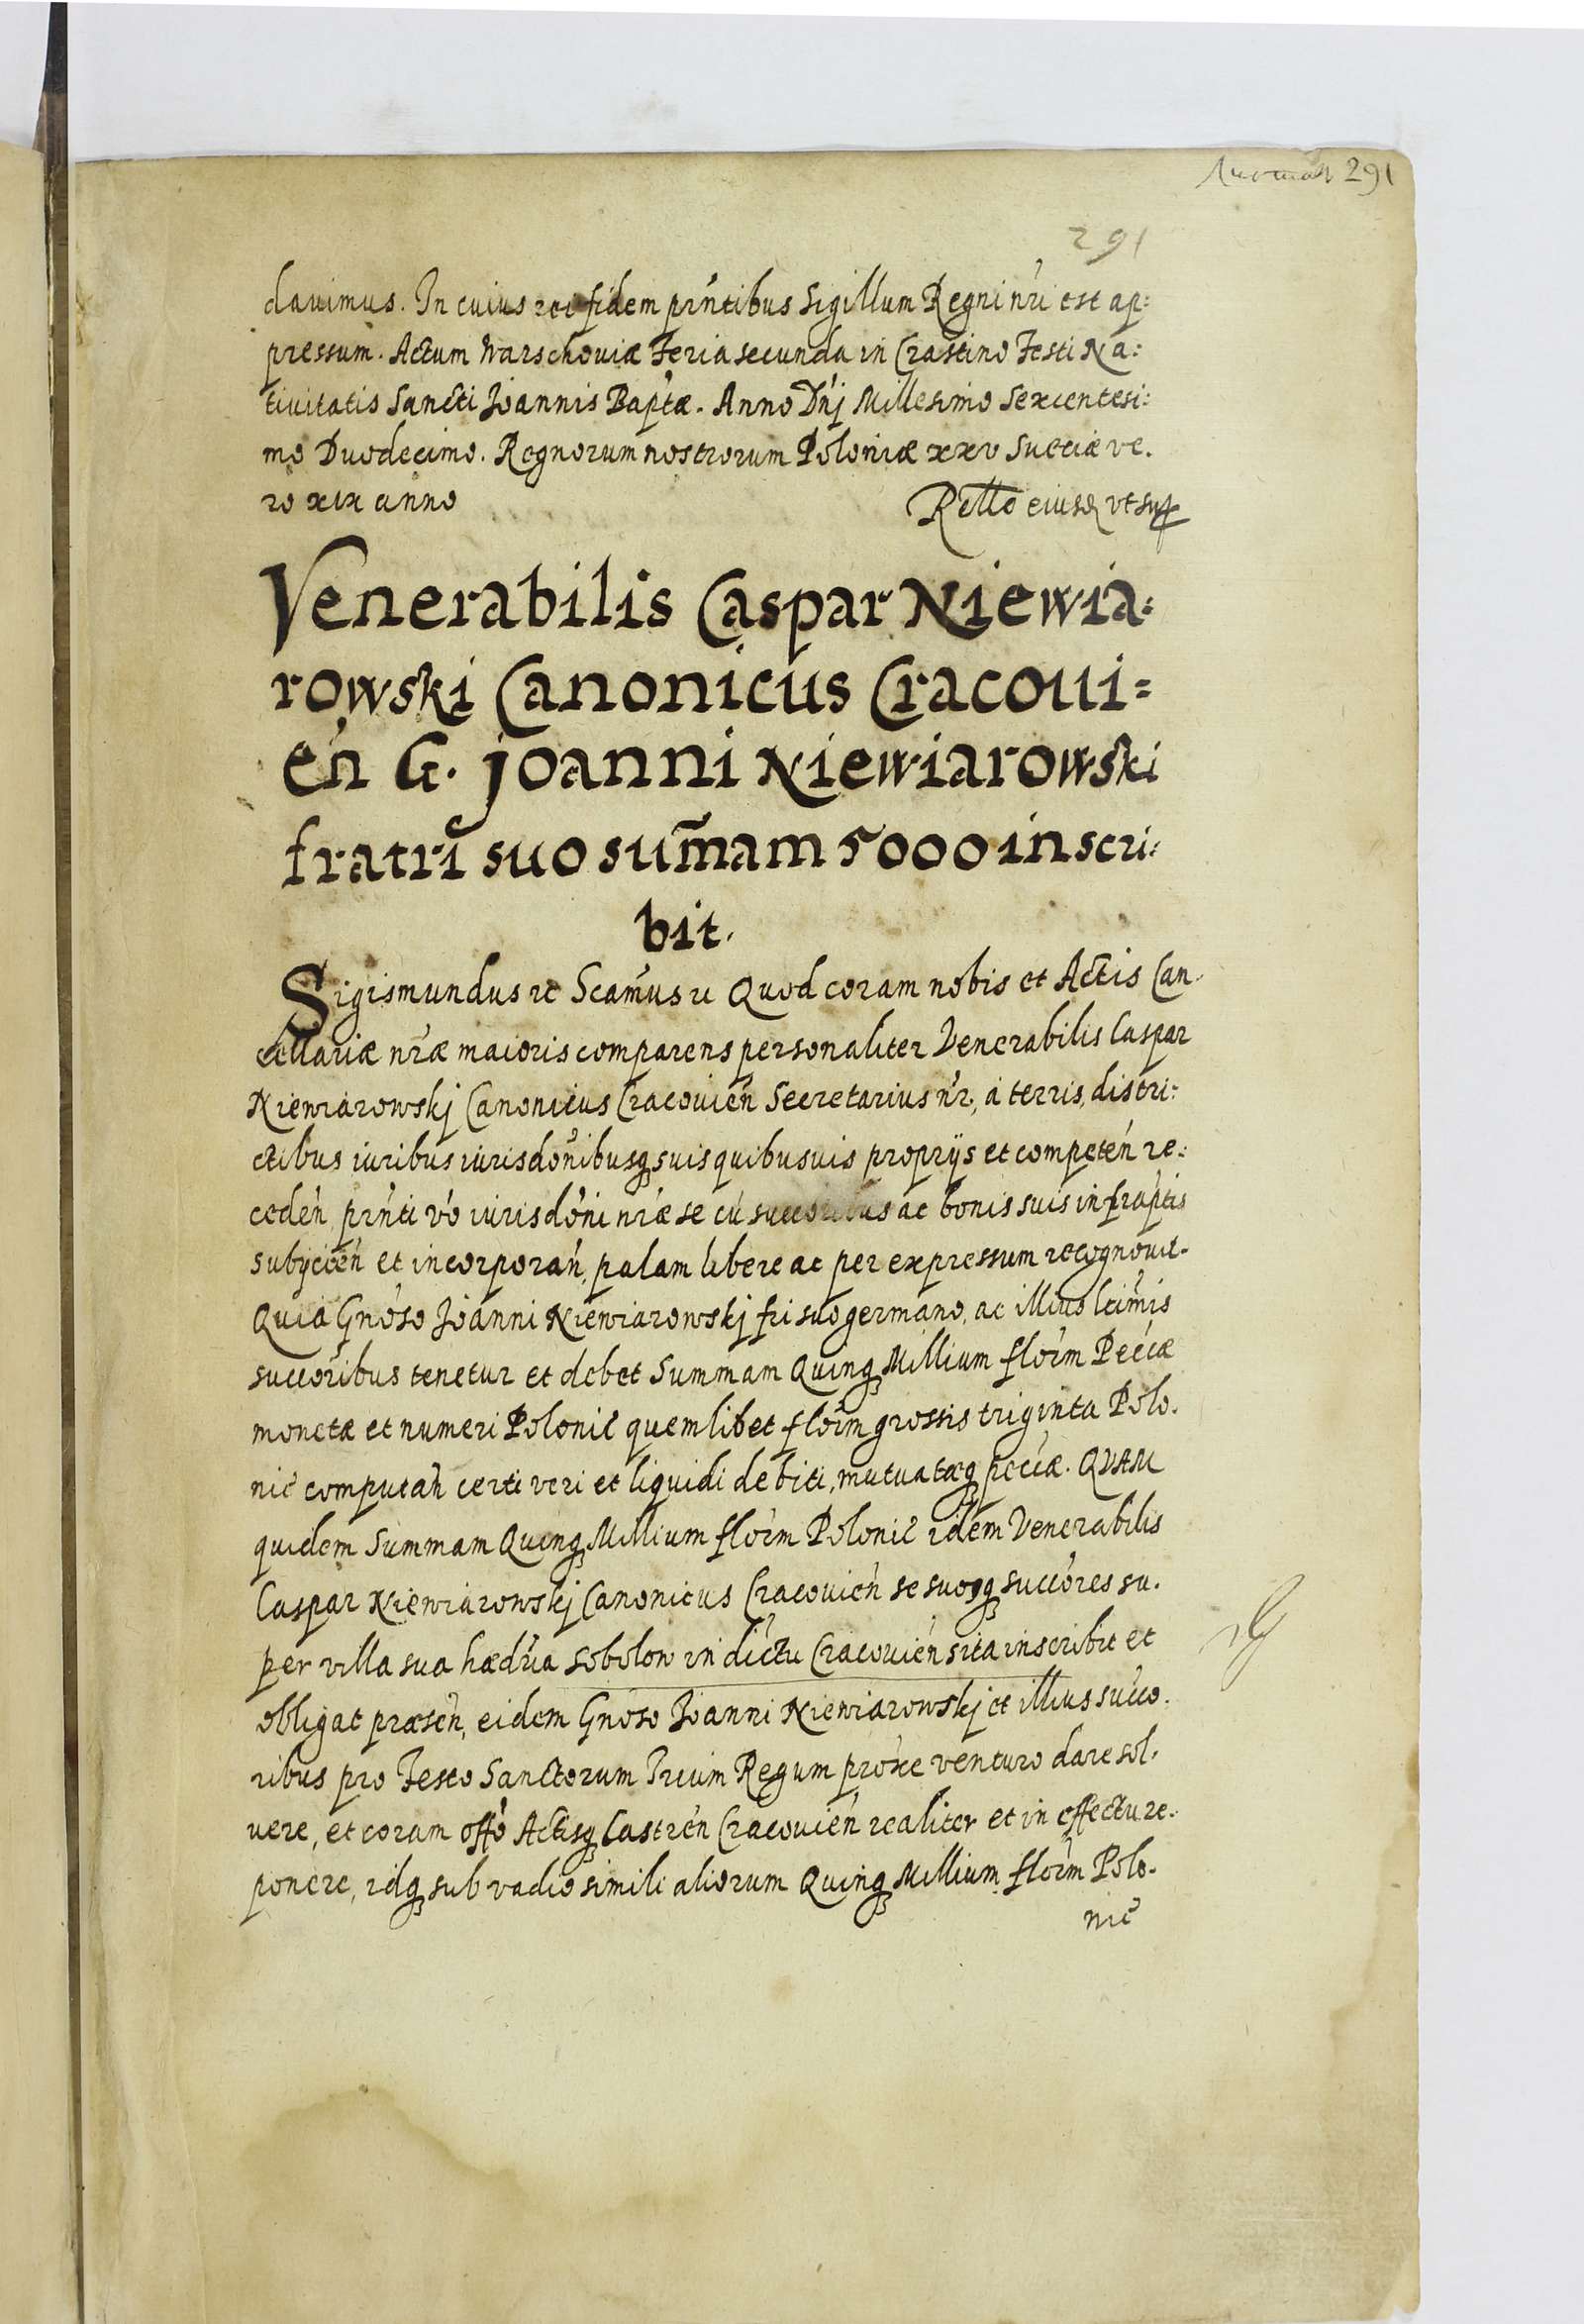 291
291
dauimus. In cuius rei fidem prńtibus Sigillum Regni nŕi est ap:
pressum. Actum Warschouiæ Feria secunda in Crastino Festi Na:
tiuitatis Sancti Joannis Baptæ. Anno Dńj Millesimo Sexcentesi:
mo Duodecimo. Regnorum nostrorum Poloniæ xxv Sueciæ ve.
ro xix anno
Rettò eiusđ vt sup
Venerabilis Caspar Niewia:
rowski Canonicus Cracoui=
eń G. Joanni Niewiarowski
fratri suo sum̃am 5000 inscri:
bit.
Sigismundus ꝛc Scimus ꝛc Quod coram nobis et Actis Can.
cellariæ nŕæ maioris comparens personaliter Venerabilis Caspar
Niewiarowskj Canonicus Cracouień Secretarius nŕ, á terris, distri:
ctibus iuribus iurisdónibusq suis quibusuis proprijs et competeń re:
cedeń, prńti vó iurisdóni nŕæ se cú succoribus ac bonis suis infraptis
subijcień et incorporań, palam libere ac per expressum recognouit.
Quia Gnoso Joanni Niewiarowskj fri suo germano, ac illius ltimis
succoribus tenetur et debet Summam Quinq Millium florm Peccæ
monetæ et numeri Polonić quemlibet florm grossis triginta Polo.
nić computań certi veri et liquidi debiti, mutuatæq peccæ. QVAM
quidem Summam Quinq Millium florm Polonić idem Venerabilis
Caspar Niewiarowskj Canonicus Cracouień se suosq succores su.
per villa sua hædria Sobolow in dictu Cracouień sita inscribit et
obligat præseń, eidem Gnoso Joanni Niewiarowskj et illius succo.
ribus pro Festo Sanctorum Trium Regum proxe venturo dare sol.
uere, et coram offó Actisq Castreń Cracouień realiter et in effectu re.
ponere, idq sub vadio simili aliorum Quinq Millium florm Polo.
nić